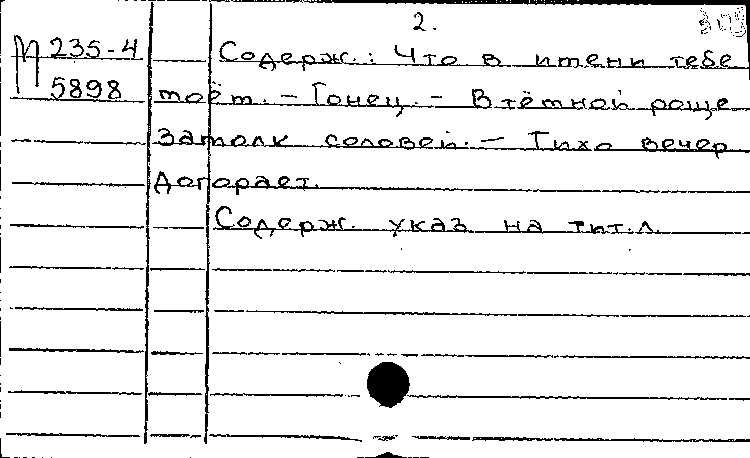 2.
М 235-4 Содерж.: Что в имени тебе
5898 моём. – Гонец. – В тёмной роще
замолк соловей. – Тихо вечер
догорает.
Содерж. указ на тит.л.